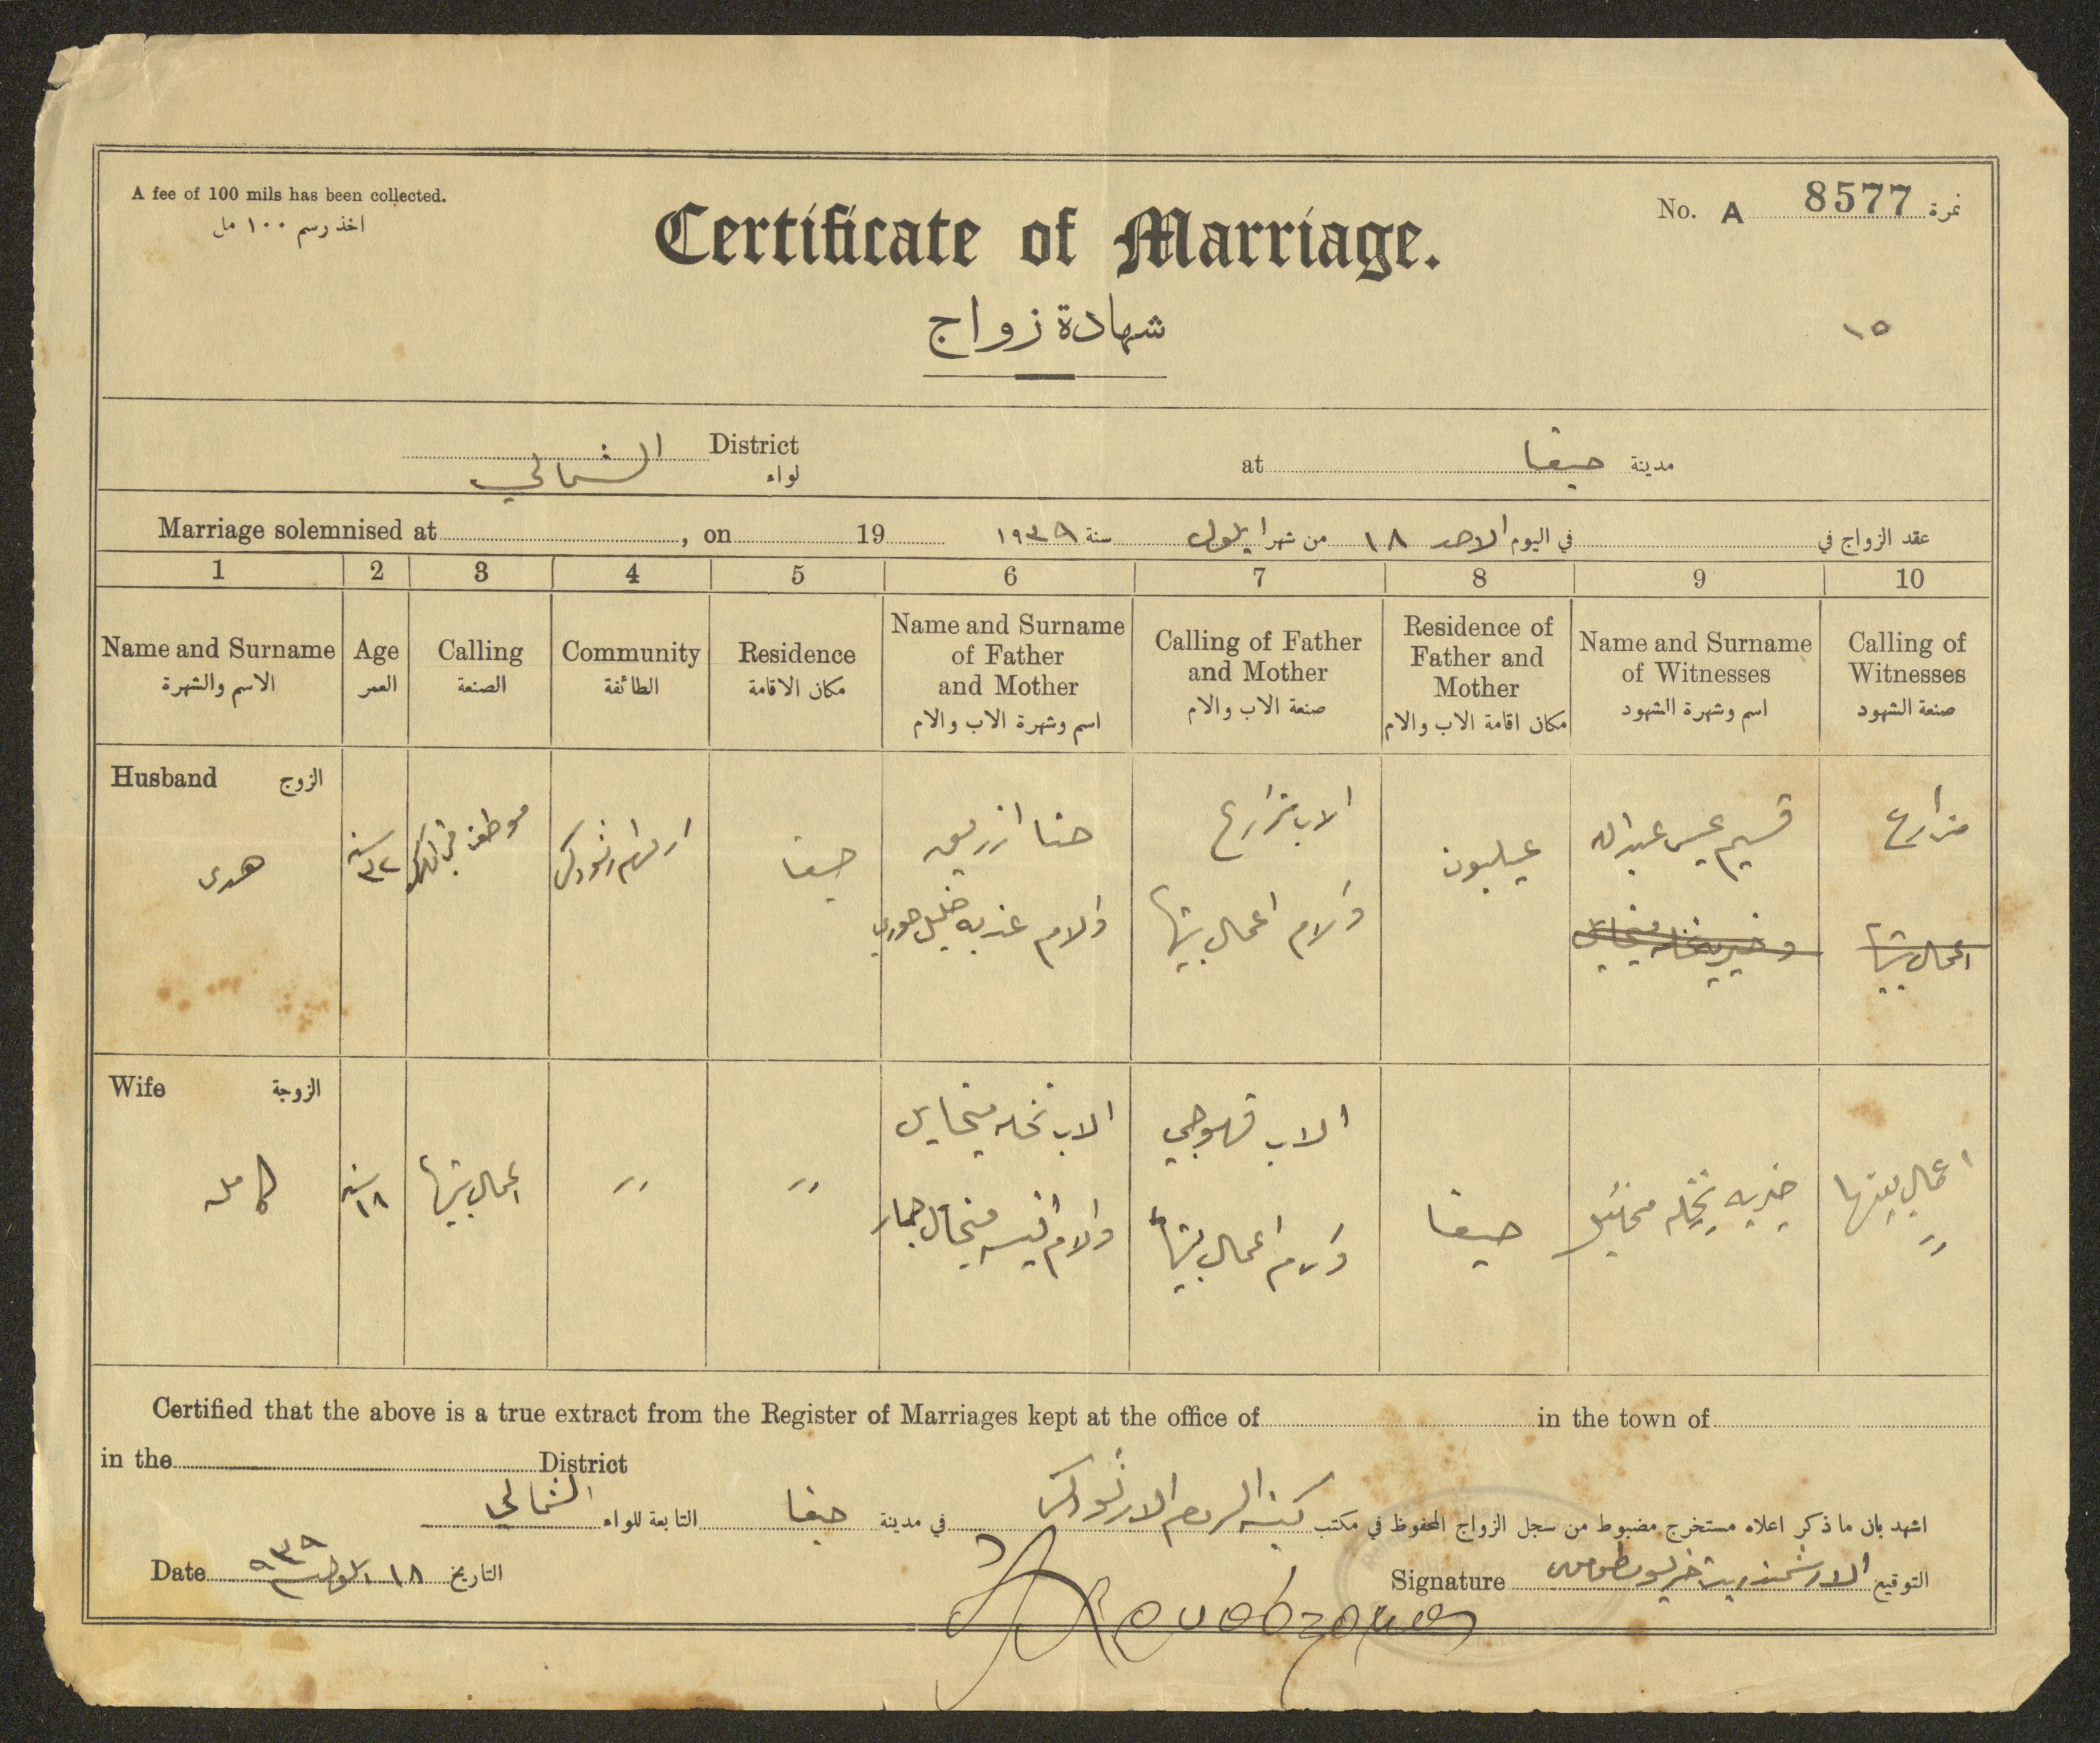 A fee of 100 mils has been collected.
اخذ رسم ١٠٠ مل
No. A 8577 نمرة
Certificate of Marriage.
شهادة زواج
١٥
الشمالي District
لواء
at حيفا مدينة
Marriage solemnised at , on 19
عقد الزواج في في اليوم الاحد ١٨ من شهر ايلول سنة ١٩٣٩
1 2 3 4 5 6 7 8 9 10
Name and Surname
الاسم والشهرة
Age
العمر
Calling
الصنعة
Community
الطائفة
Residence
مكان الاقامة
Name and Surname
of Father
and Mother
اسم وشهرة الاب والام
Calling of Father
and Mother
صنعة الاب والام
Residence of
Father and
Mother
مكان اقامة الاب والام
Name and Surname
of Witnesses
اسم وشهرة الشهود
Calling of
Witnesses
صنعة الشهود
Husband الزوج
هدى
سنة
٣٢
موظف في
ارثوذكس
حيفا
حنا
والام خليل خوري
الاب مزارع
والام اعمال بيتها
عيلبون
قسيم عيسى عبدالله
وخيريه نخله ميخائيل
مزارع
اعمال بيتها
Wife الزوجة
كامله
سنة
١٨
اعمال بيتها
"
"
الاب نخله ميخايل
والام انيسه ميخائيل
الاب قهوجي
والام اعمال بيتها
حيفا
خيريه نخله مخائيل
اعمال بيتها
"
Certified that the above is a true extract from the Register of Marriages kept at the office of in the town of
in the District
اشهد بان ما ذكر اعلاه مستخرج مضبوط من سجل الزواج المحفوظ في مكتب كنيسة الروم الارثوذكس في مدينة حيفا التابعة للواء الشمالي
Date ١٨ ايلول سنة ٩٣٩ التاريخ
Signature الارشمندريت التوقيع